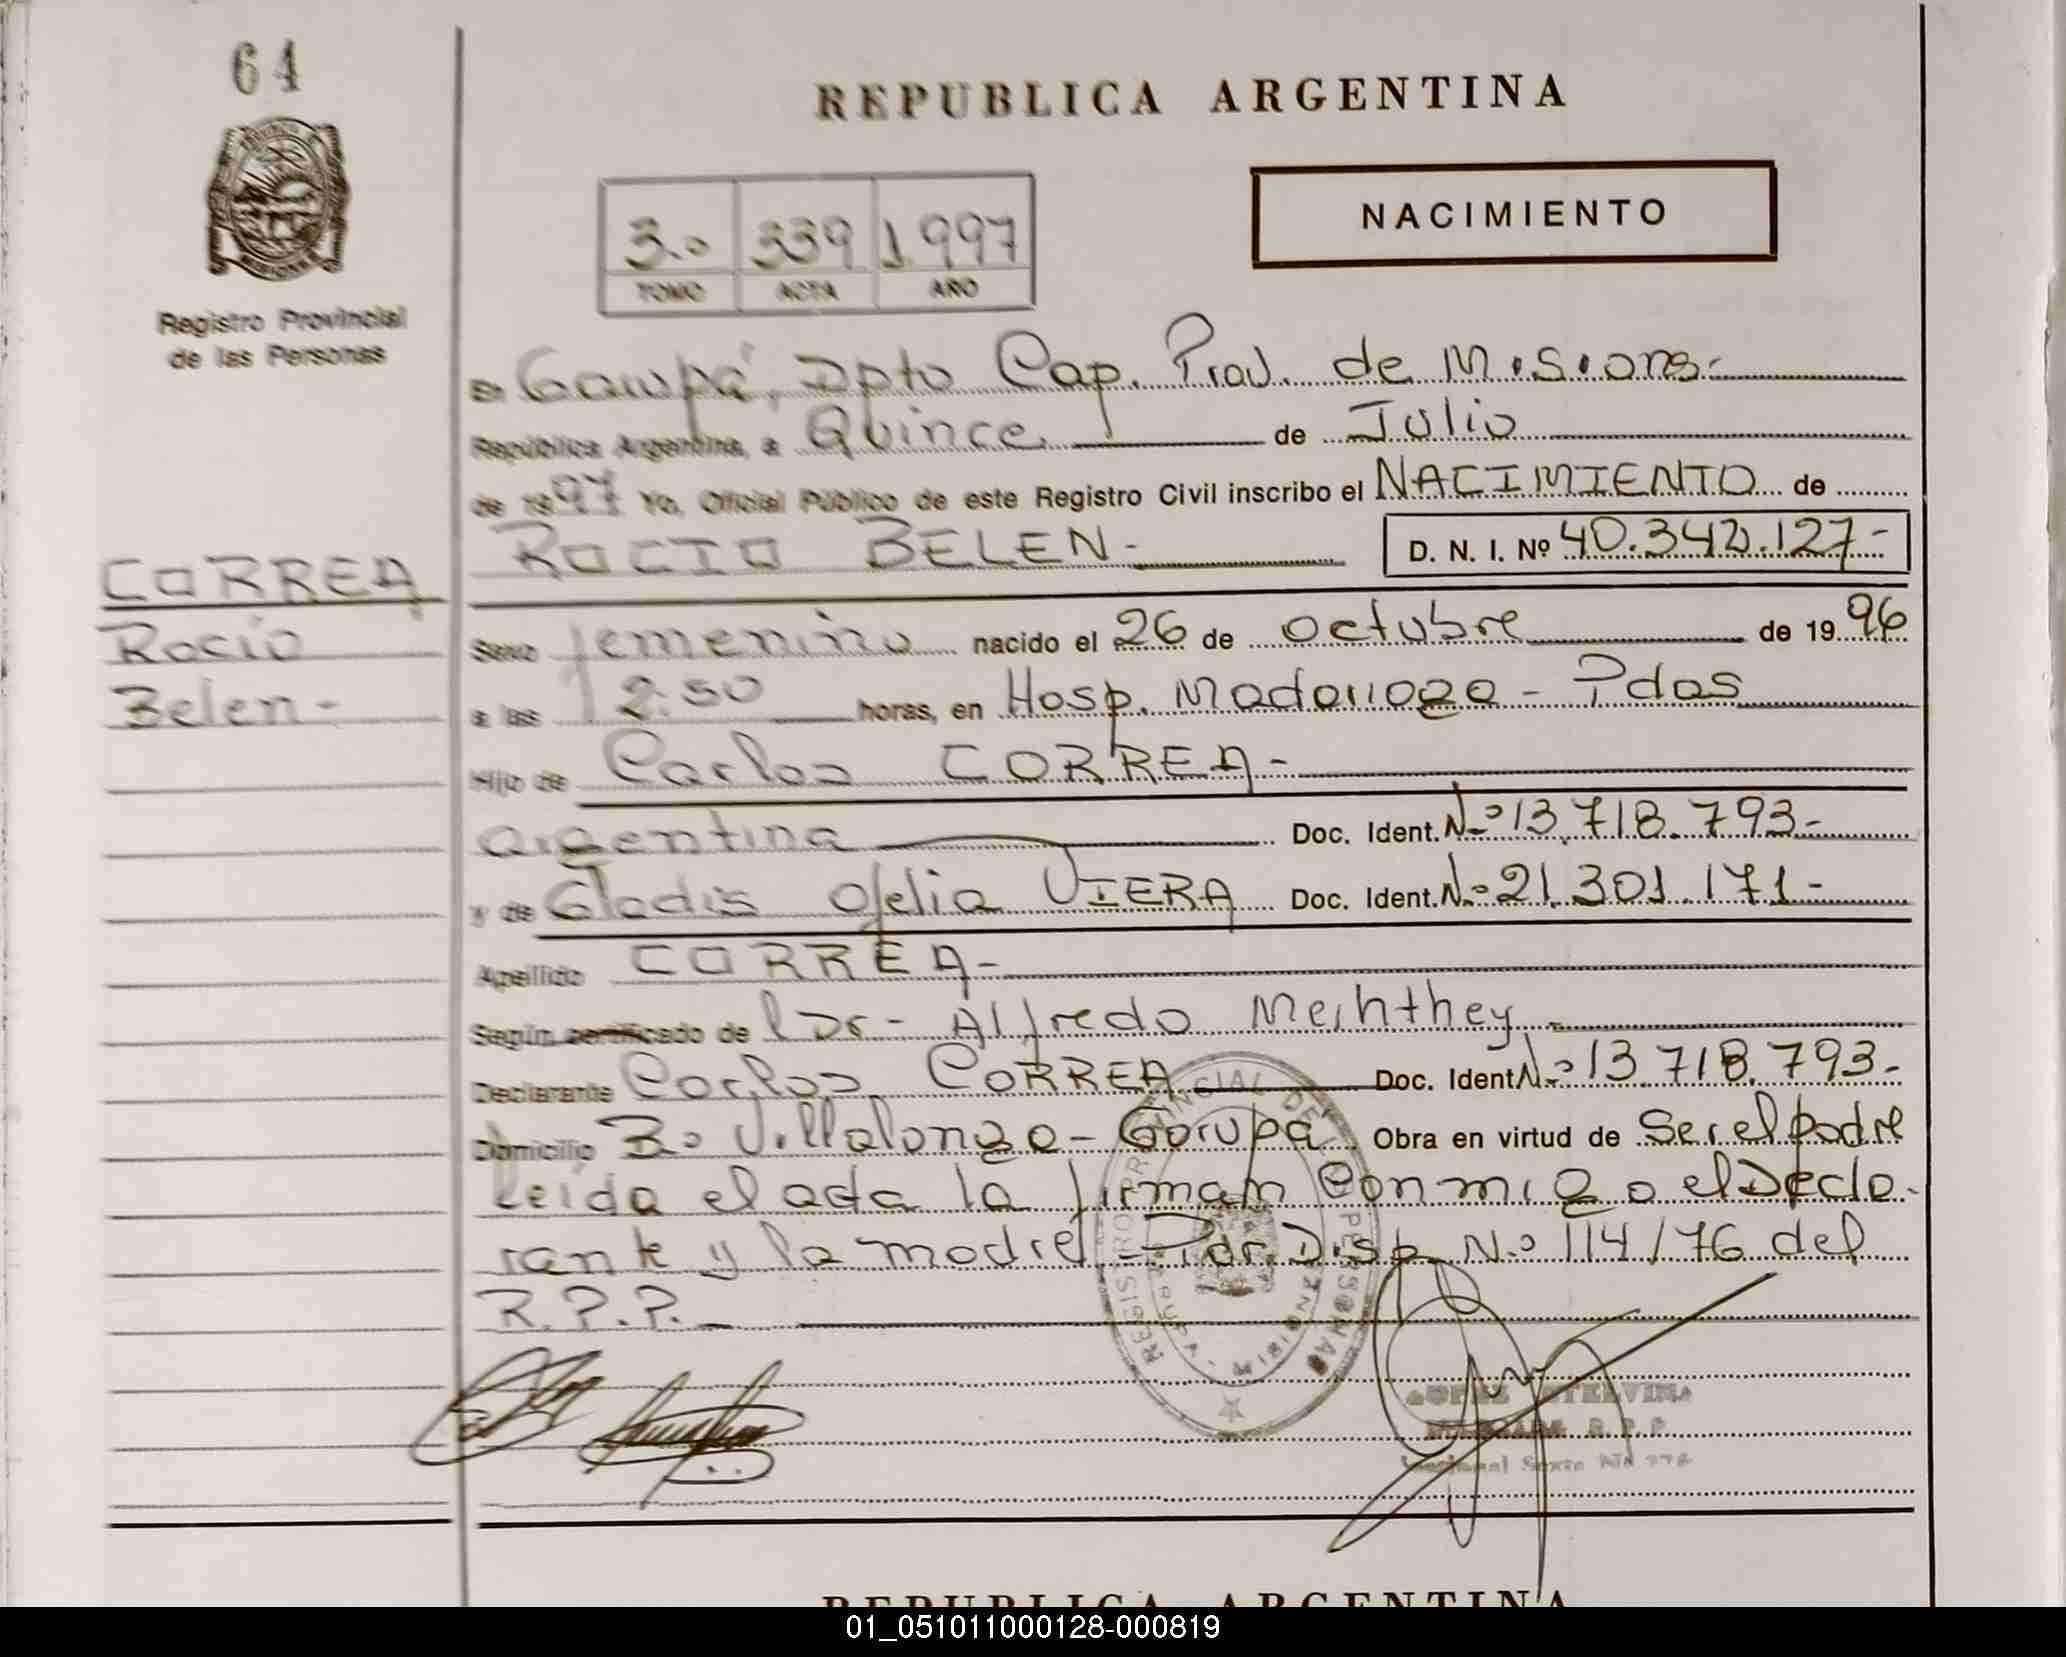 64
REPUBLICA ARGENTINA
NACIMIENTO
3.º 339 1.997
TOMO ACTA AÑO
Registro Provincial
de las Personas
En Garupá, Dpto Cap. Prov. de Misiones.-
República Argentina, a Quince de Julio
de 1997 Yo, Oficial Público de este Registro Civil inscribo el NACIMIENTO de
ROCIO BELEN- D. N. I. Nº 40.342.127-
CORREA
Rocio
Belen-
Sexo femenino nacido el 26 de octubre de 1996
a las 12.50 horas, en Hosp. Madariaga - Pdas
Hijo de Carlos CORREA-
argentina Doc. Ident. Nº 13.718.793-
y de Gladis Ofelia VIERA Doc. Ident. Nº 21.301.171-
Apellido CORREA-
Según certificado de Dr- Alfredo
Declarante Carlos CORREA Doc. Ident Nº 13.718.793-
Domicilio Bº Villalonga - Garupá Obra en virtud de Ser el padre
Leída el acta la firman Conmigo el Decla-
rante y la madre.- Por Disp. Nº 114/76 del
R.P.P.
REGISTRO PROVINCIAL DE LAS PERSONAS
GARUPA - MISIONES
R. P. P.
REPUBLICA ARGENTINA
01_051011000128-000819